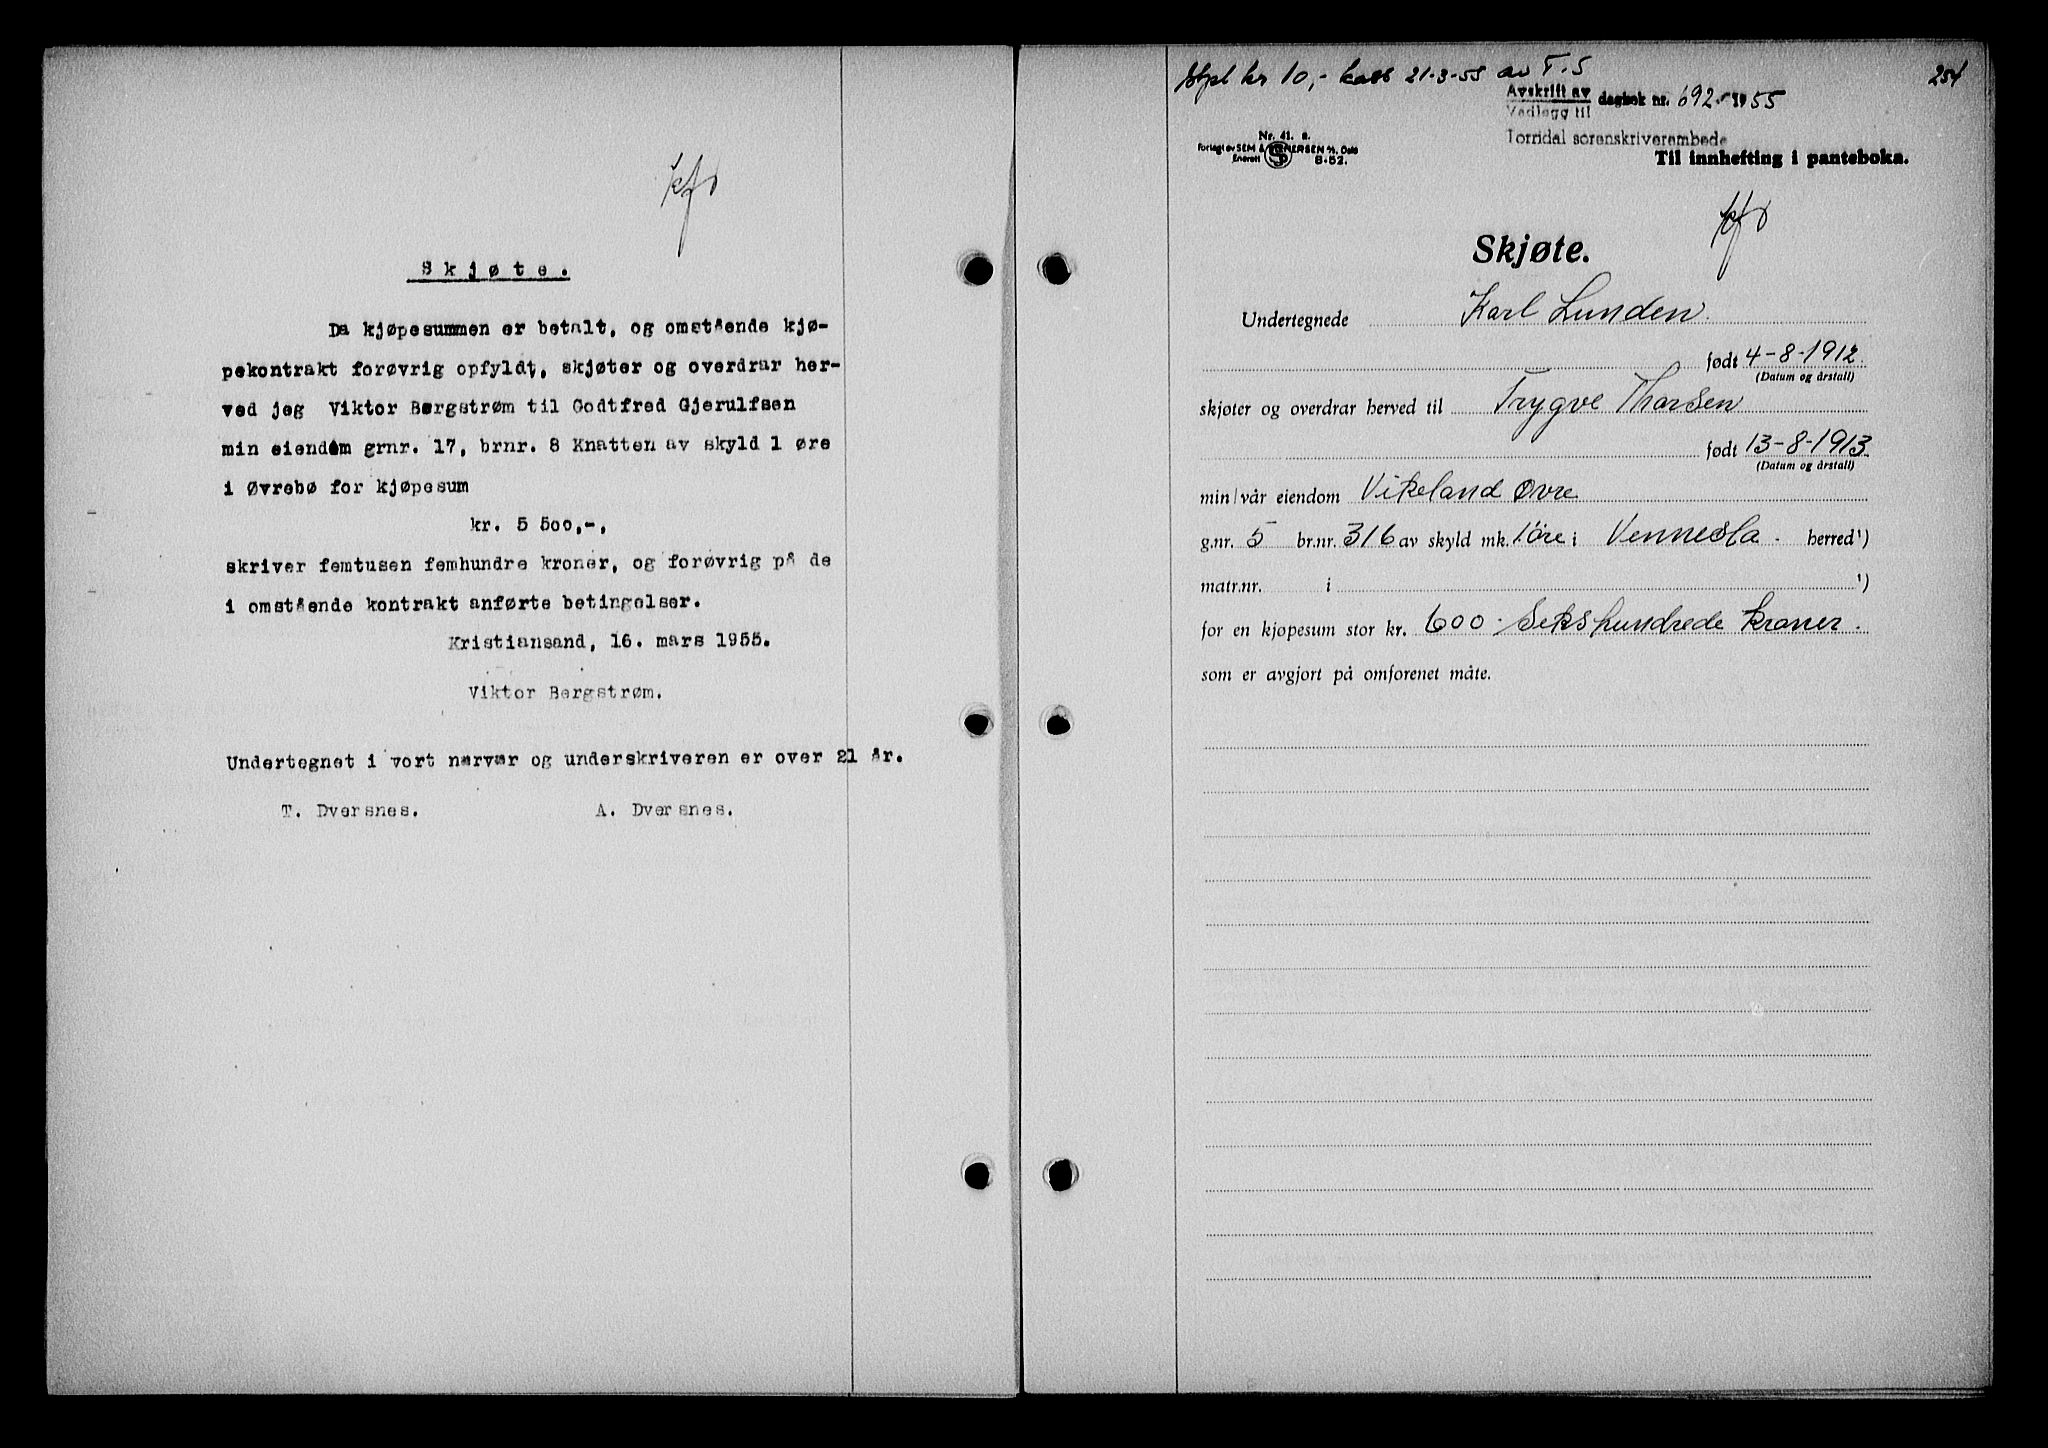 Skjøte.
Da kjøpesummen er betalt, og omstående kjø-
pekontrakt forøvrig opfyldt, skjøter og overdrar her-
ved jeg Viktor Bergstrøm til Godtfred Gjerulfsen
min eiendom grnr. 17, brnr. 8 Knatten av skyld 1 øre
i Øvrebø for kjøpesum
kr. 5 500,-,
skriver femtusen femhundre kroner, og forøvrig på de
i omstående kontrakt anførte betingelser.
Kristiansand, 16. mars 1955.
Viktor Bergstrøm.
Undertegnet i vort nærvær og underskriveren er over 21 år.
T. Dversnes. A. Dversnes.
Stpl kr 10,- kass 21-3-55 av T.S
254
Avskrift av
Vedlegg til
dagbok nr. 692 1955
Torridal sorenskriverembede
Nr. 41. a.
Forlagt av SEM & STENERSEN A/S, Oslo
Enerett S 8-52.
Til innhefting i panteboka.
Skjøte.
Undertegnede Karl Lunden
født 4-8-1912
(Datum og årstall)
skjøter og overdrar herved til Trygve Thorsen
født 13-8-1913
(Datum og årstall)
min/vår eiendom Vikeland Øvre
g.nr. 5 br.nr. 316 av skyld mk. 1 øre i Vennesla. herred¹)
matr.nr. i ¹)
for en kjøpesum stor kr. 600 - Sekshundrede kroner.
som er avgjort på omforenet måte.